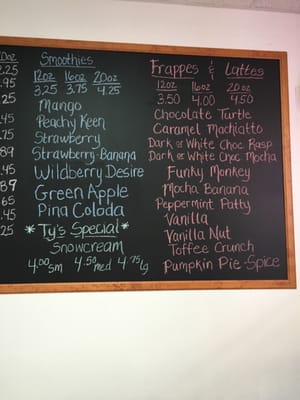 20oz
2.25
.95
.25
.45
.75
.89
.45
.89
.65
.45
.25
Smoothies
12oz 16oz 20oz
3.25 3.75 4.25
Mango
Peachy Keen
Strawberry
Strawberry-Banana
Wildberry Desire
Green Apple
Pina Coloda
*Ty's Special*
Snowcream
4.00sm 4.50med 4.75lg
Frappes & Lattes
12oz 16oz 20oz
3.50 4.00 4.50
Chocolate Turtle
Caramel Machiatto
Dark or White Choc Rasp
Dark or White Choc Mocha
Funky Monkey
Mocha Banana
Peppermint Patty
Vanilla
Vanilla Nut
Toffee Crunch
Pumpkin Pie-Spice